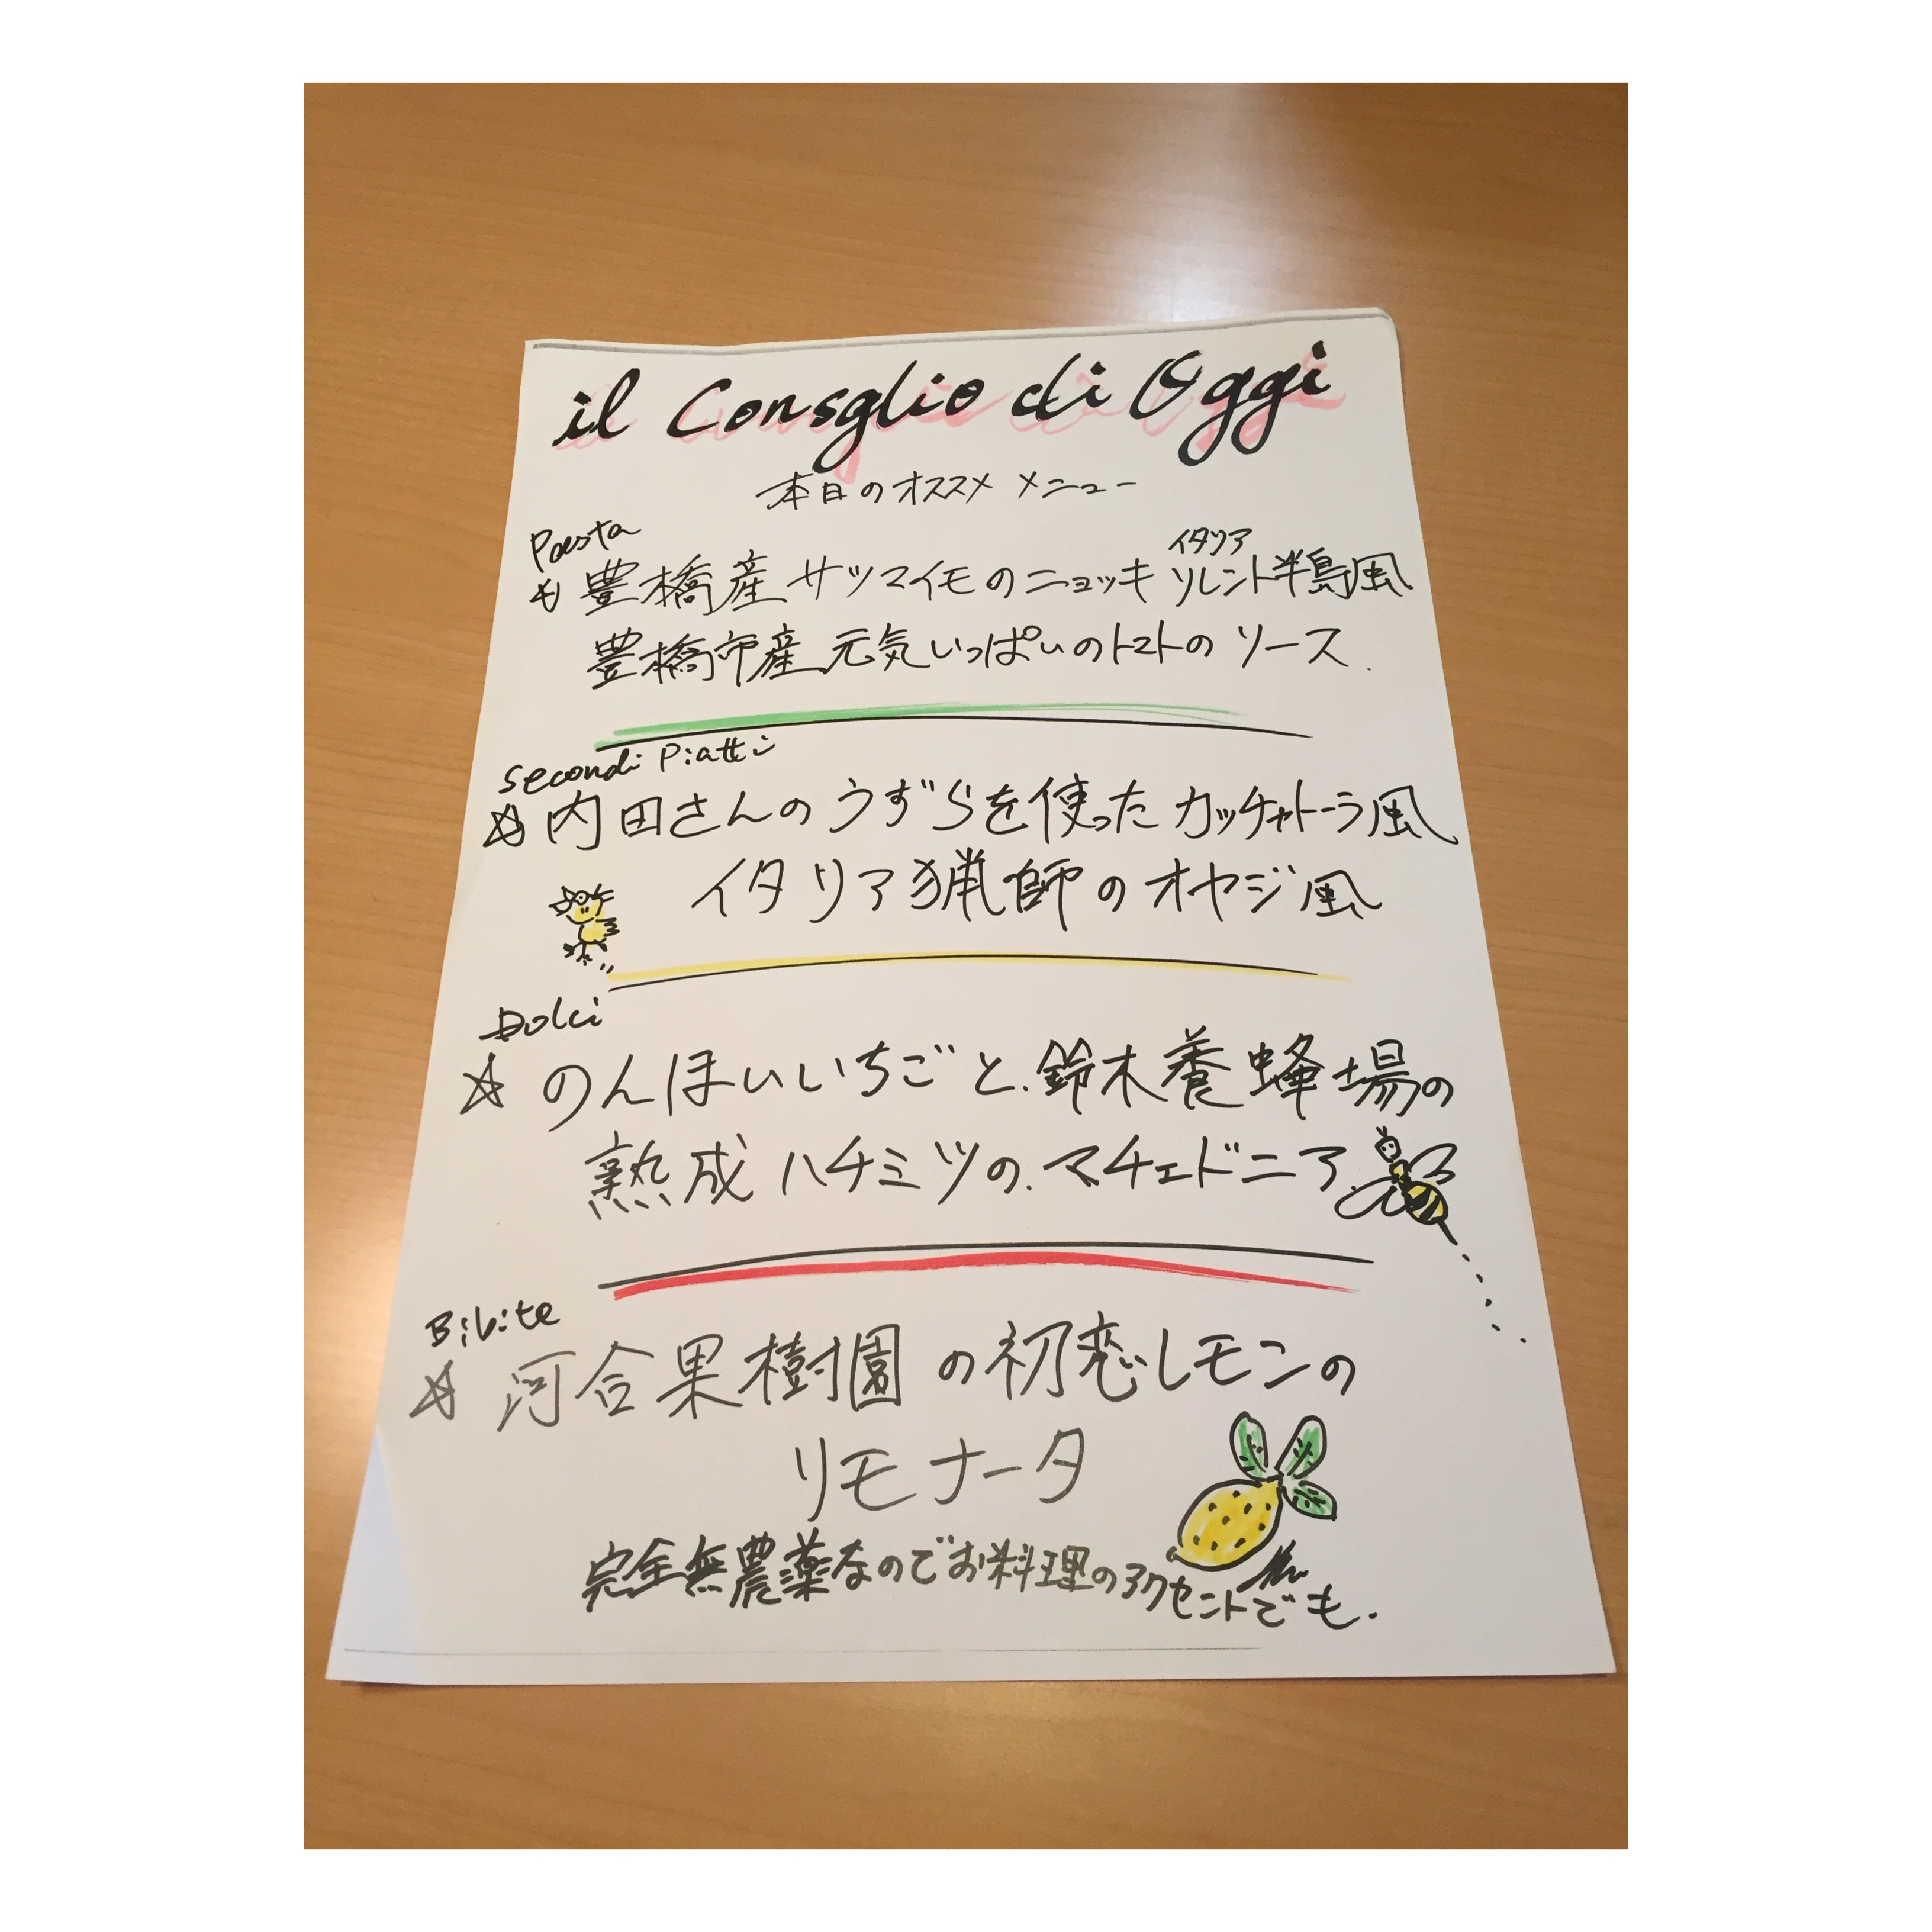 il Consglio di Oggi
本日のオススメ メニュー
Pasta
イタリア
☆ 豊橋産サツマイモのニョッキ ソレント半島風
豊橋市産 元気いっぱいのトマトの ソース.
Secondi Piatti
☆ 内田さんのうずらを使った カッチャトーラ風
イタリア猟師のオヤジ風
Dolci
☆ のんほいいちごと、鈴木養蜂場の
熟成 ハチミツの、マチェドニア.
Bibite
☆ 河合果樹園の初恋レモンの
リモナータ
完全無農薬なのでお料理のアクセントでも.